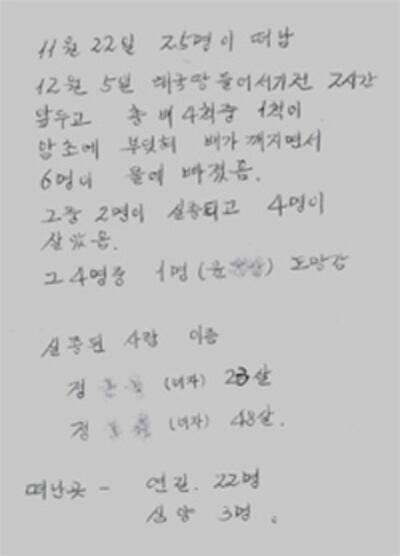 11월 22일 25명이 떠남
12월 5일 태국땅 들어서기전 2시간
앞두고 총 배 4척중 1척이
암초에 부딪혀 배가 깨지면서
6명이 물에 빠졌음.
그중 2명이 실종되고 4명이
살았음.
그 4명중 1명 (윤 ) 도망감
실종된 사람 이름
정 (여자) 23살
정 (여자) 48살.
떠난곳 - 연길. 22명
심양 3명.